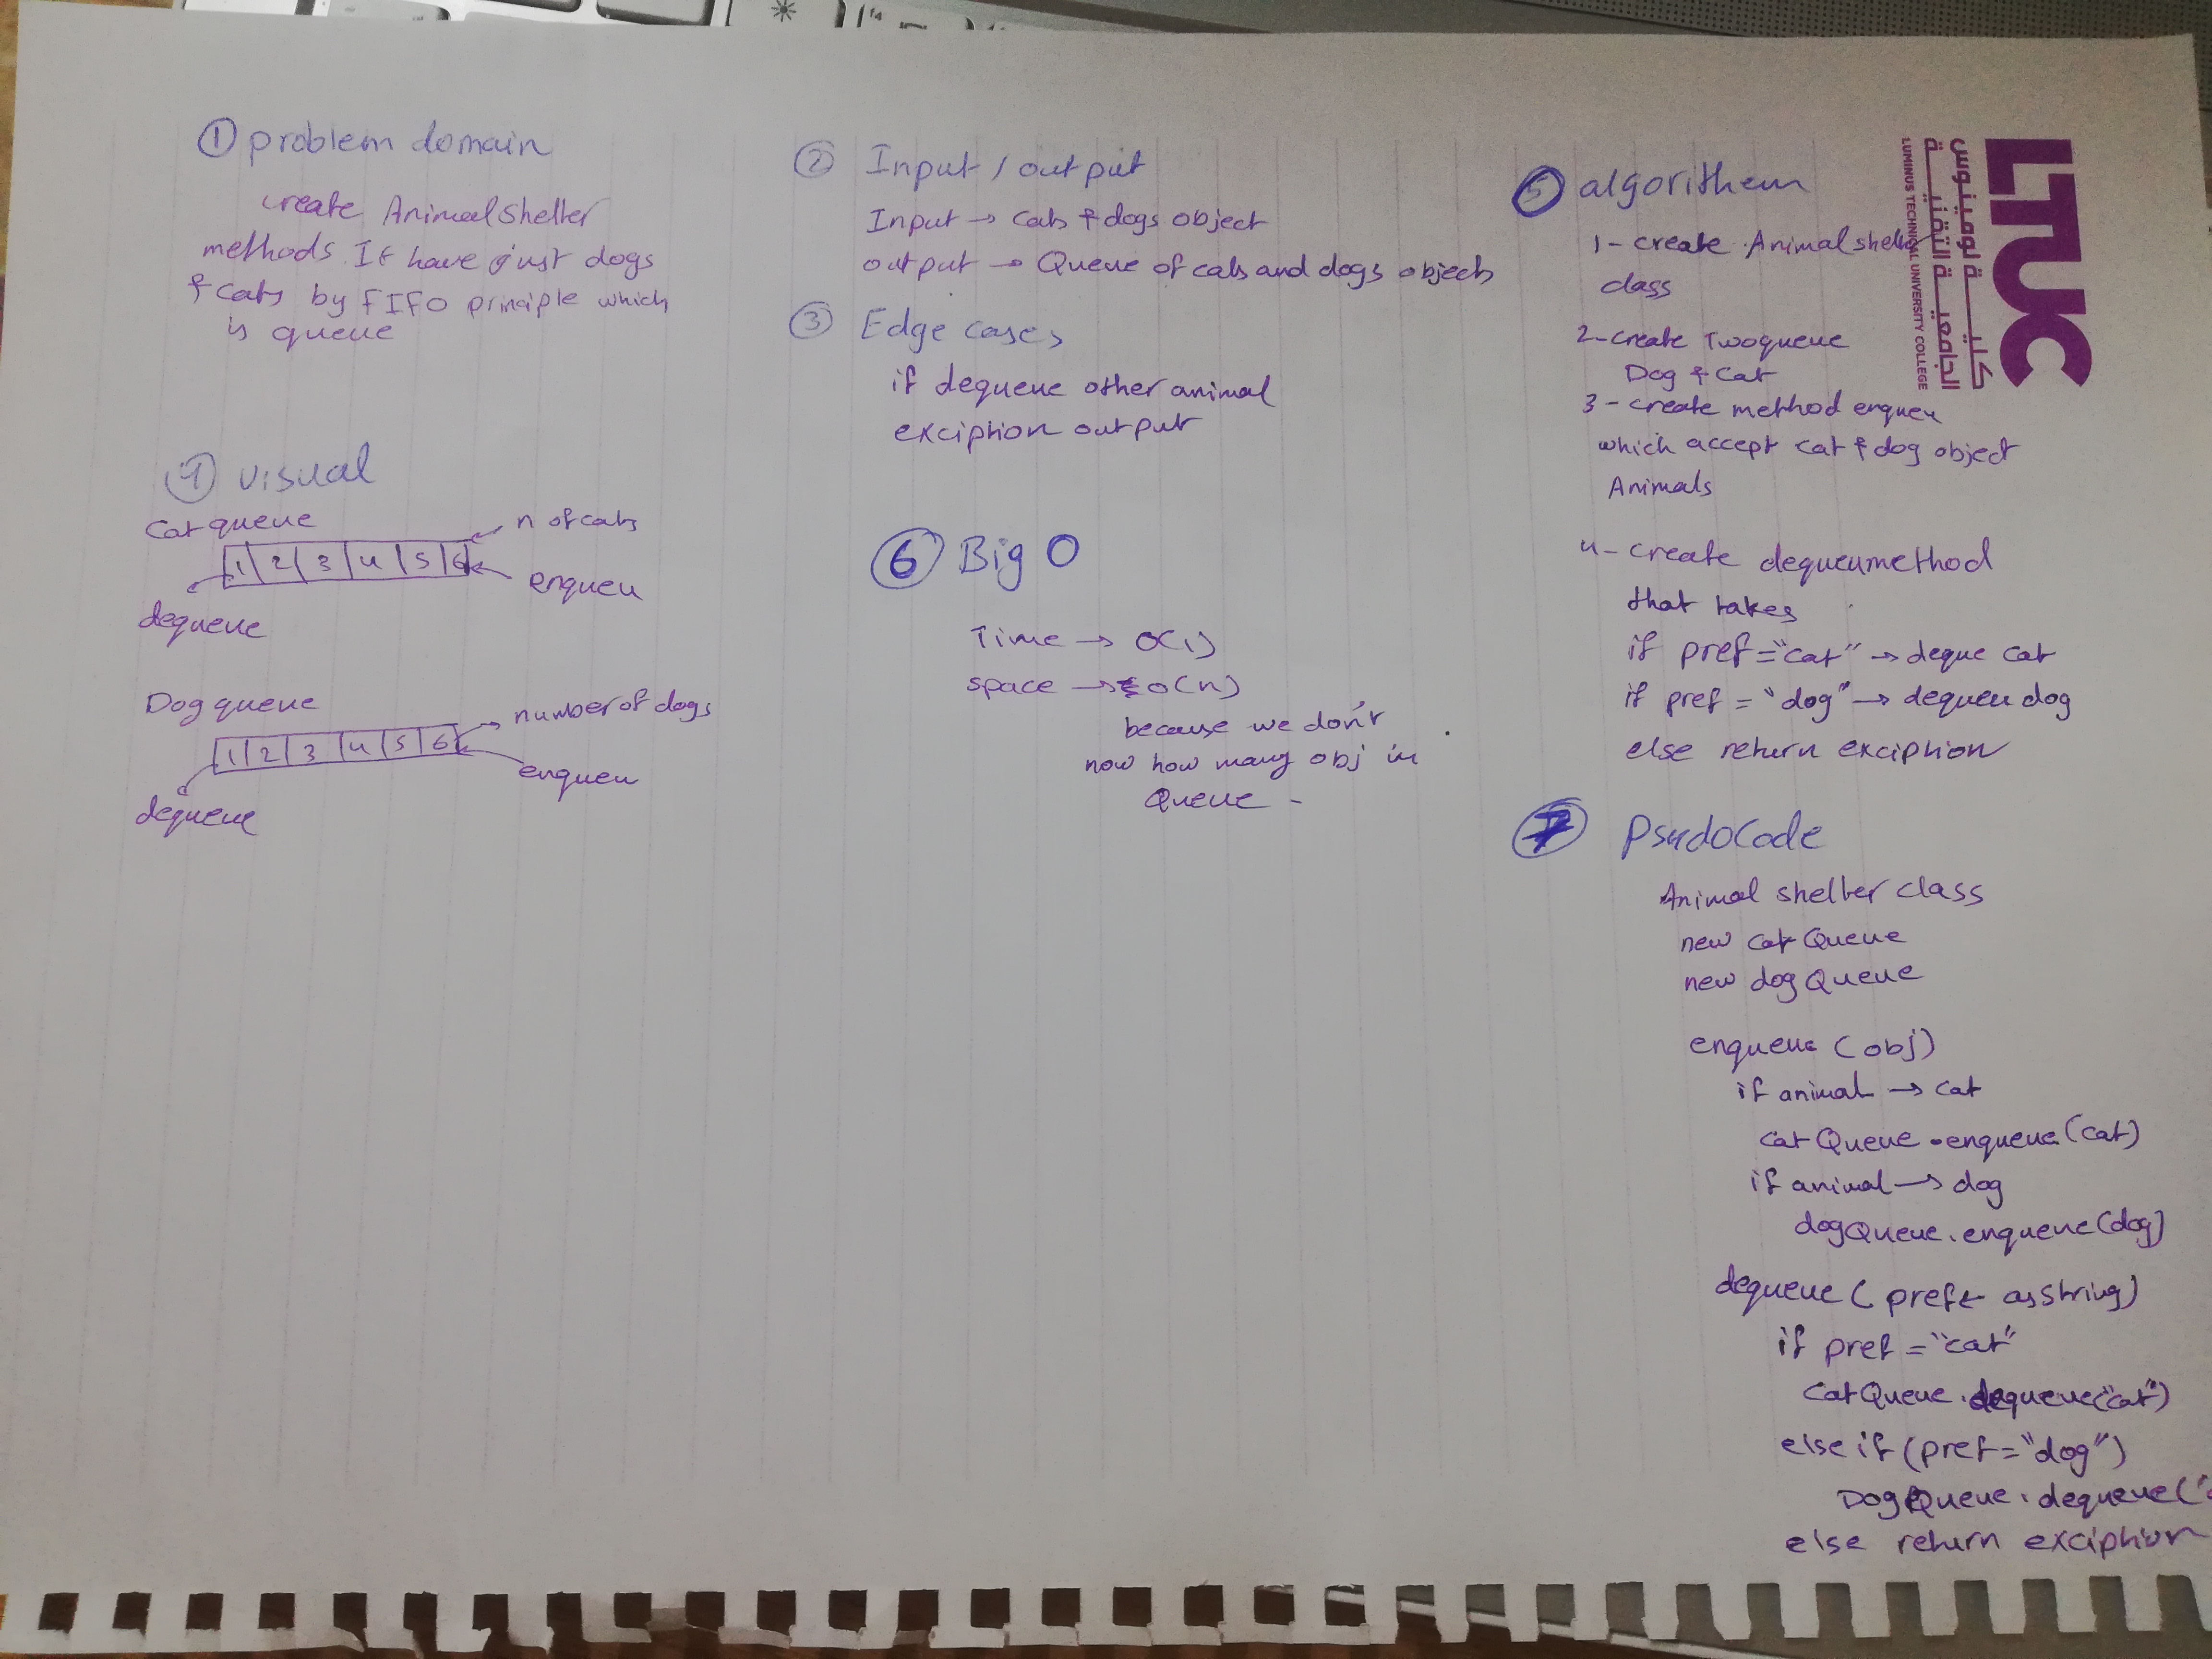 ① problem domain
create Animal Shelter
methods It have just dogs
& cats by FIFO principle which
is queue
④ visual
Cat queue
n of cats
1 2 3 4 5 6
enqueu
dequeue
Dog queue
number of dogs
1 2 3 4 5 6
enqueu
dequeue
② Input / output
Input → cats & dogs object
output → Queue of cats and dogs objects
③ Edge cases
if dequeue other animal
exciption output
⑥ Big O
Time → O(1)
space → O(n)
because we don't
now how many obj in
Queue -
⑤ algorithem
1- create Animal shelter
class
2- create Two queue
Dog & Cat
3- create method enqueu
which accept cat & dog object
Animals
4- create dequeu method
that takes
if pref = "cat" → deque cat
if pref = "dog" → dequeu dog
else return exciption
⑦ PsudoCode
Animal shelter class
new cat Queue
new dog Queue
enqueue (obj)
if animal → cat
cat Queue . enqueue (cat)
if animal → dog
dogQueue . enqueue (dog)
dequeue ( pref ← as string)
if pref = "cat"
Cat Queue . dequeue ("cat")
else if (pref = "dog")
Dog Queue . dequeue ("
else return exciption
LTUC
كليـــــــة لومينوس
الجامعيـــة التقنيـــة
LUMINUS TECHNICAL UNIVERSITY COLLEGE